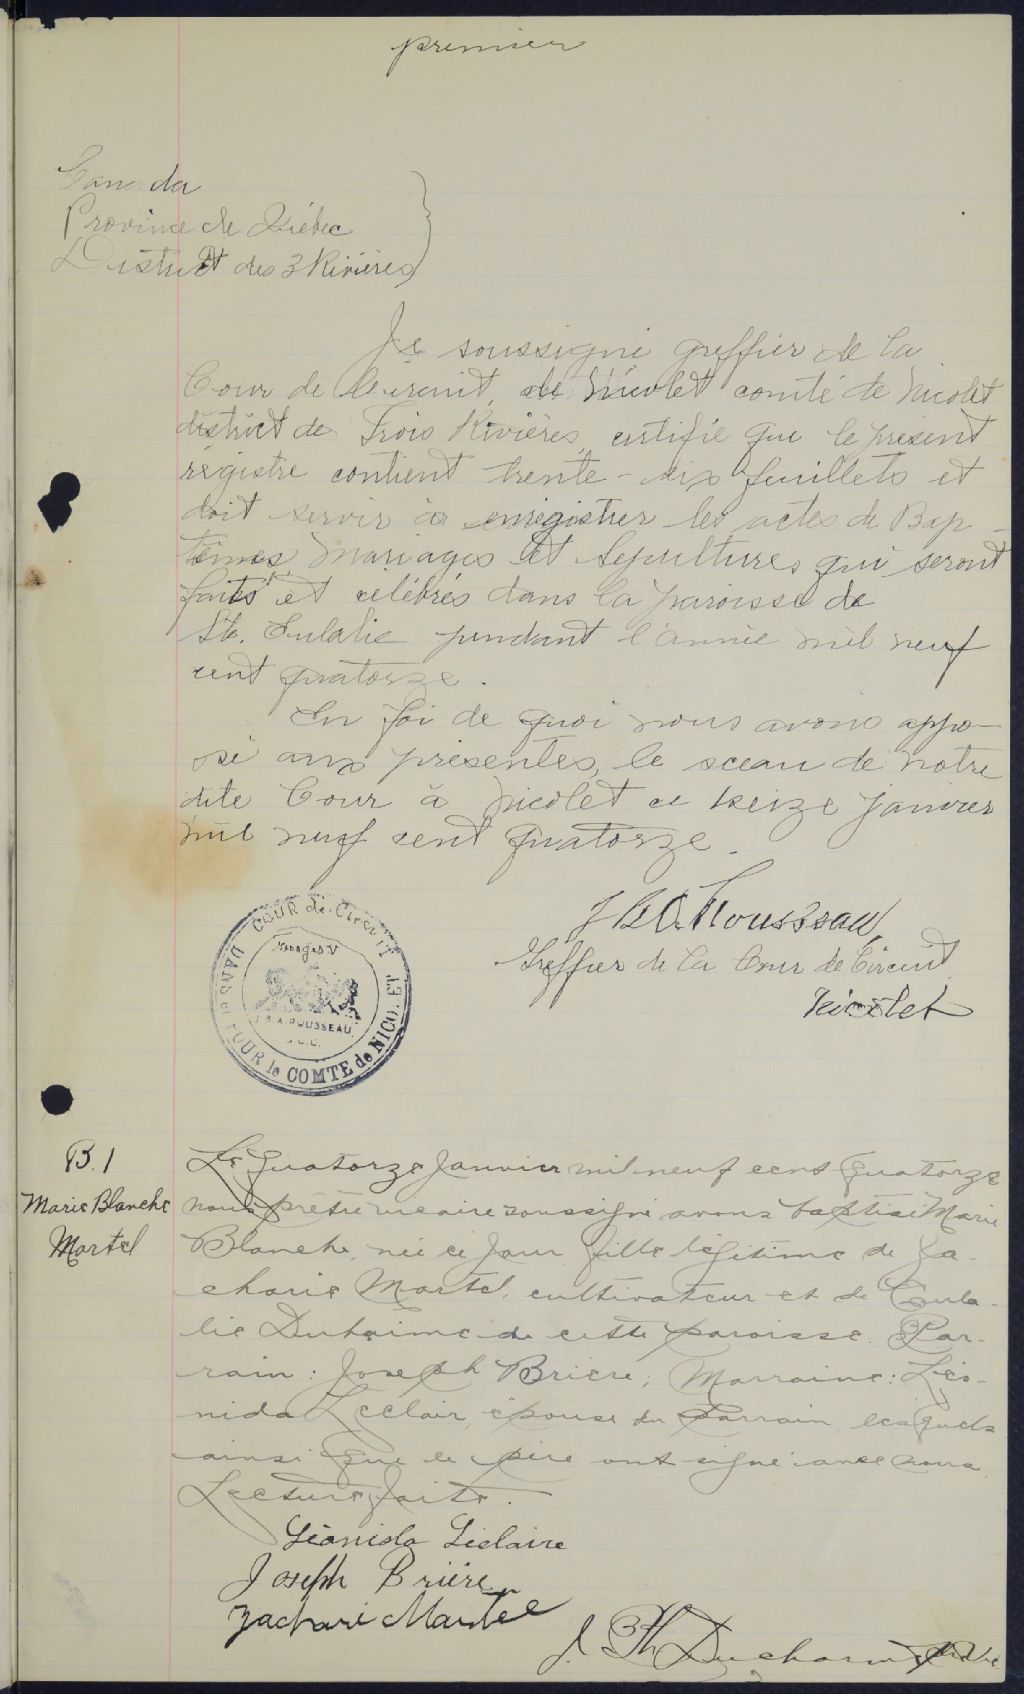 premier
Canada
Province de Québec
District des 3 Rivières
Je soussigné greffier de la
Cour de Circuit, de Nicolet comté de Nicolet
district de Trois Rivières, certifie que le présent
régistre contient trente-six feuillets et
doit servir à enrégistrer les actes de Bap-
têmes, Mariages et Sépultures qui seront
faits et célébrés dans la paroisse de
Ste. Eulalie pendant l'année mil neuf
cent quatorze.
En foi de quoi nous avons appo-
sé aux présentes, le sceau de notre
dite Cour à Nicolet ce treize janvier
mil neuf cent quatorze.
COUR de CIRCUIT
DANS et POUR le COMTE de NICOLET
Georges V
A. ROUSSEAU
Rousseau
Greffier de la Cour de Circuit
Nicolet
B. 1
Marie Blanche
Martel
Le quatorze janvier mil neuf cent quatorze
nous prêtre vicaire soussigné avons baptisé Marie
Blanche, née ce jour fille légitime de Za-
charie Martel, cultivateur et de Eula-
lie Duhaime de cette paroisse. Par-
rain: Joseph Brière; Marraine: Léo-
nida Leclair, épouse du parrain, lesquels
ainsi que le père ont signé avec nous.
Lecture faite.
Léonida Leclaire
Joseph Brière
Zacharie Martel
J. Th. Ducharme ptre Vic.